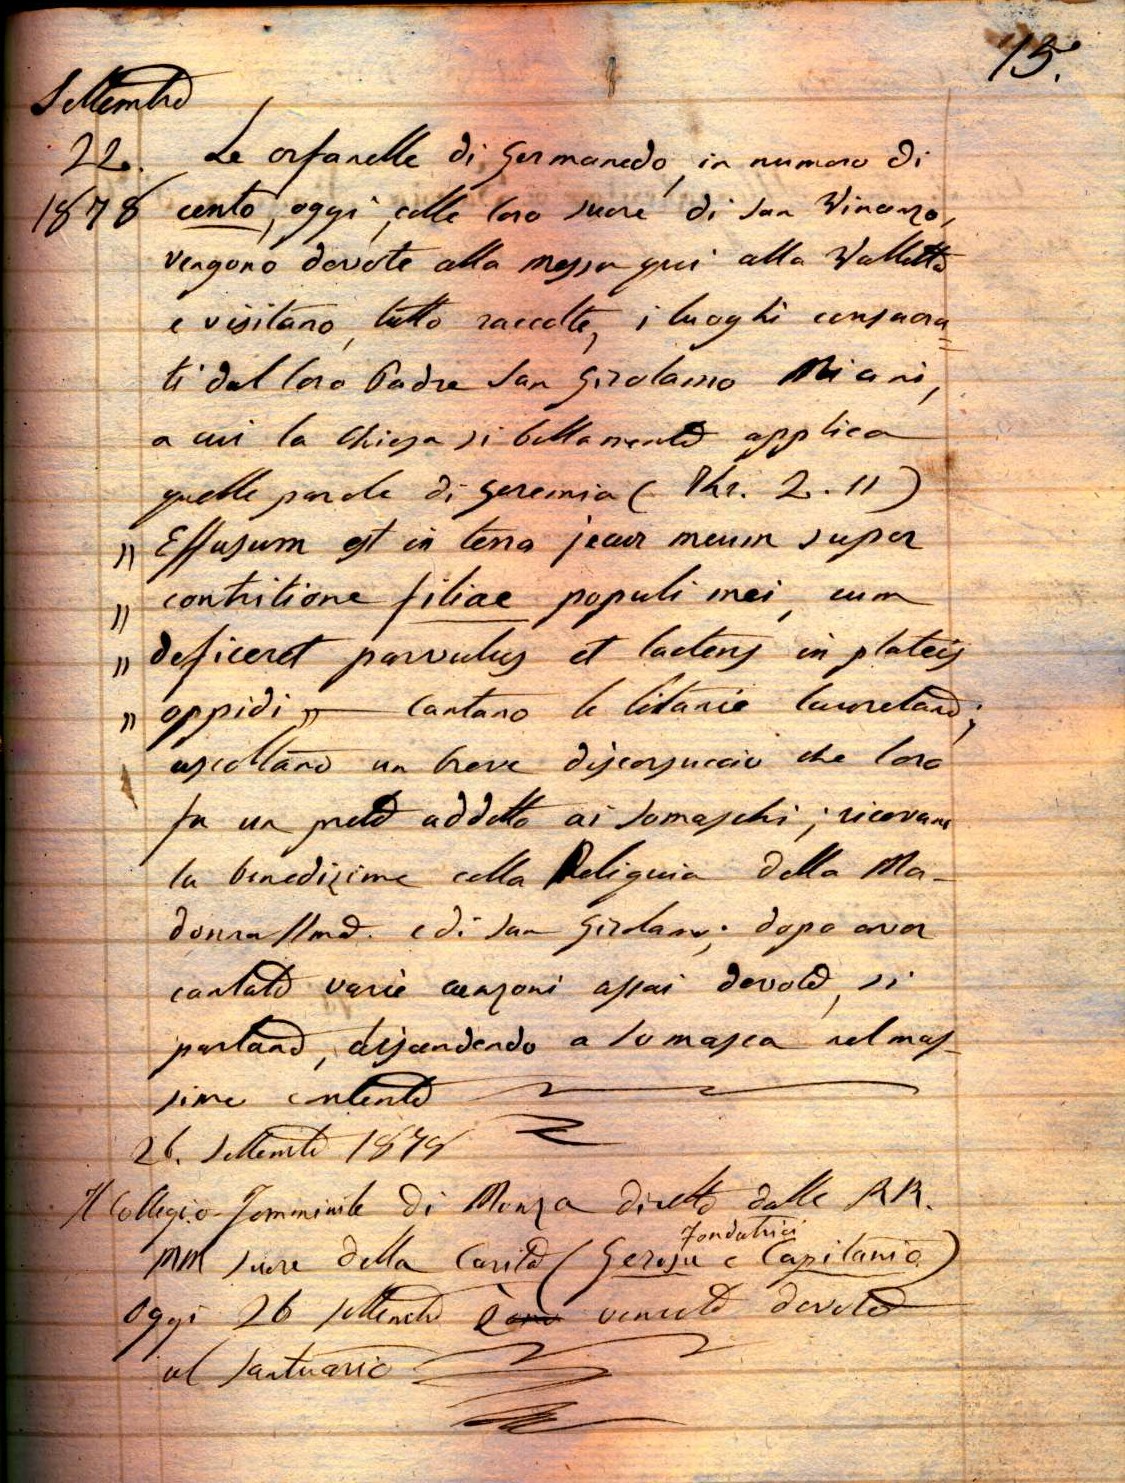 15.
Settembre
22. Le orfanelle di Germanedo, in numero di
1878 cento, oggi, colle loro suore di San Vincenzo,
vengono devote alla messa qui alla Valletta
e visitano, tutte raccolte, i luoghi consacra=
ti dal loro Padre San Girolamo Miani,
a cui la Chiesa sì bellamente applica
quelle parole di Geremia ( Thr. 2. 11 )
„ Effusum est in terra jecur meum super
„ contritione filiae populi mei, cum
„ deficeret parvulus et lactens in plateis
„ oppidi „ — Cantano le litanie lauretane;
ascoltano un breve discorsuccio che loro
fa un prete addetto ai Somaschi; ricevano
la benedizione colla Reliquia della Ma-
donna SSma. e di San Girolamo; dopo aver
cantate varie canzoni assai devote, si
partano, discendendo a Somasca nel mas-
sime contente
26. Settembre 1878
Il Collegio Femminile di Monza diretto dalle RR.
MM Suore della Carità ( Gerosa e Capitanio fondatrici )
Oggi 26 settembre è venuto devoto
al Santuario